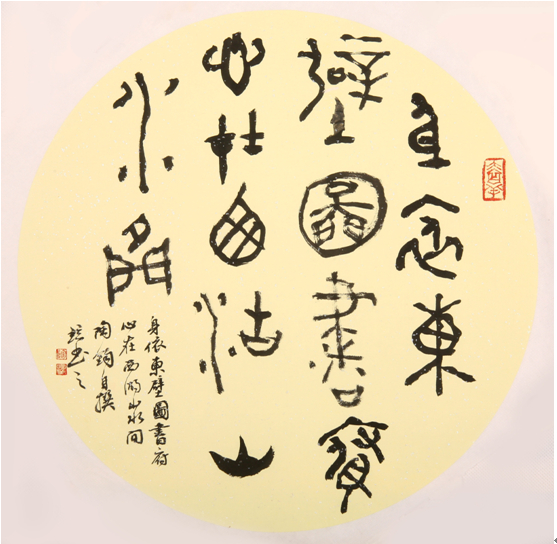 身依東
壁圖書府
心在西湖山
水間
身依東壁圖書府
心在西湖山水間
陶鈞自撰
書之